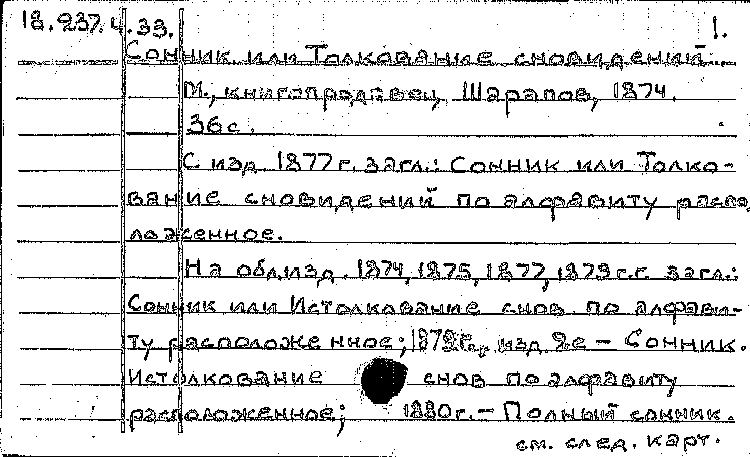 18.237.4.33. 1.
Сонник или Толкование сновидений...
М., книгопродавец Шарапов, 1874.
36с.
С изд 1877г. загл.: Сонник или Толко-
вание сновидений по алфавиту распо
ложенное.
На обл.изд. 1874, 1875, 1877, 1879 г.г. загл.:
Сонник или Истолкование снов по алфави-
ту расположенное; изд 2е - Сонник.
Истолкование снов по алфавиту
расположенное; 1880г. - Полный сонник.
см. след. карт.